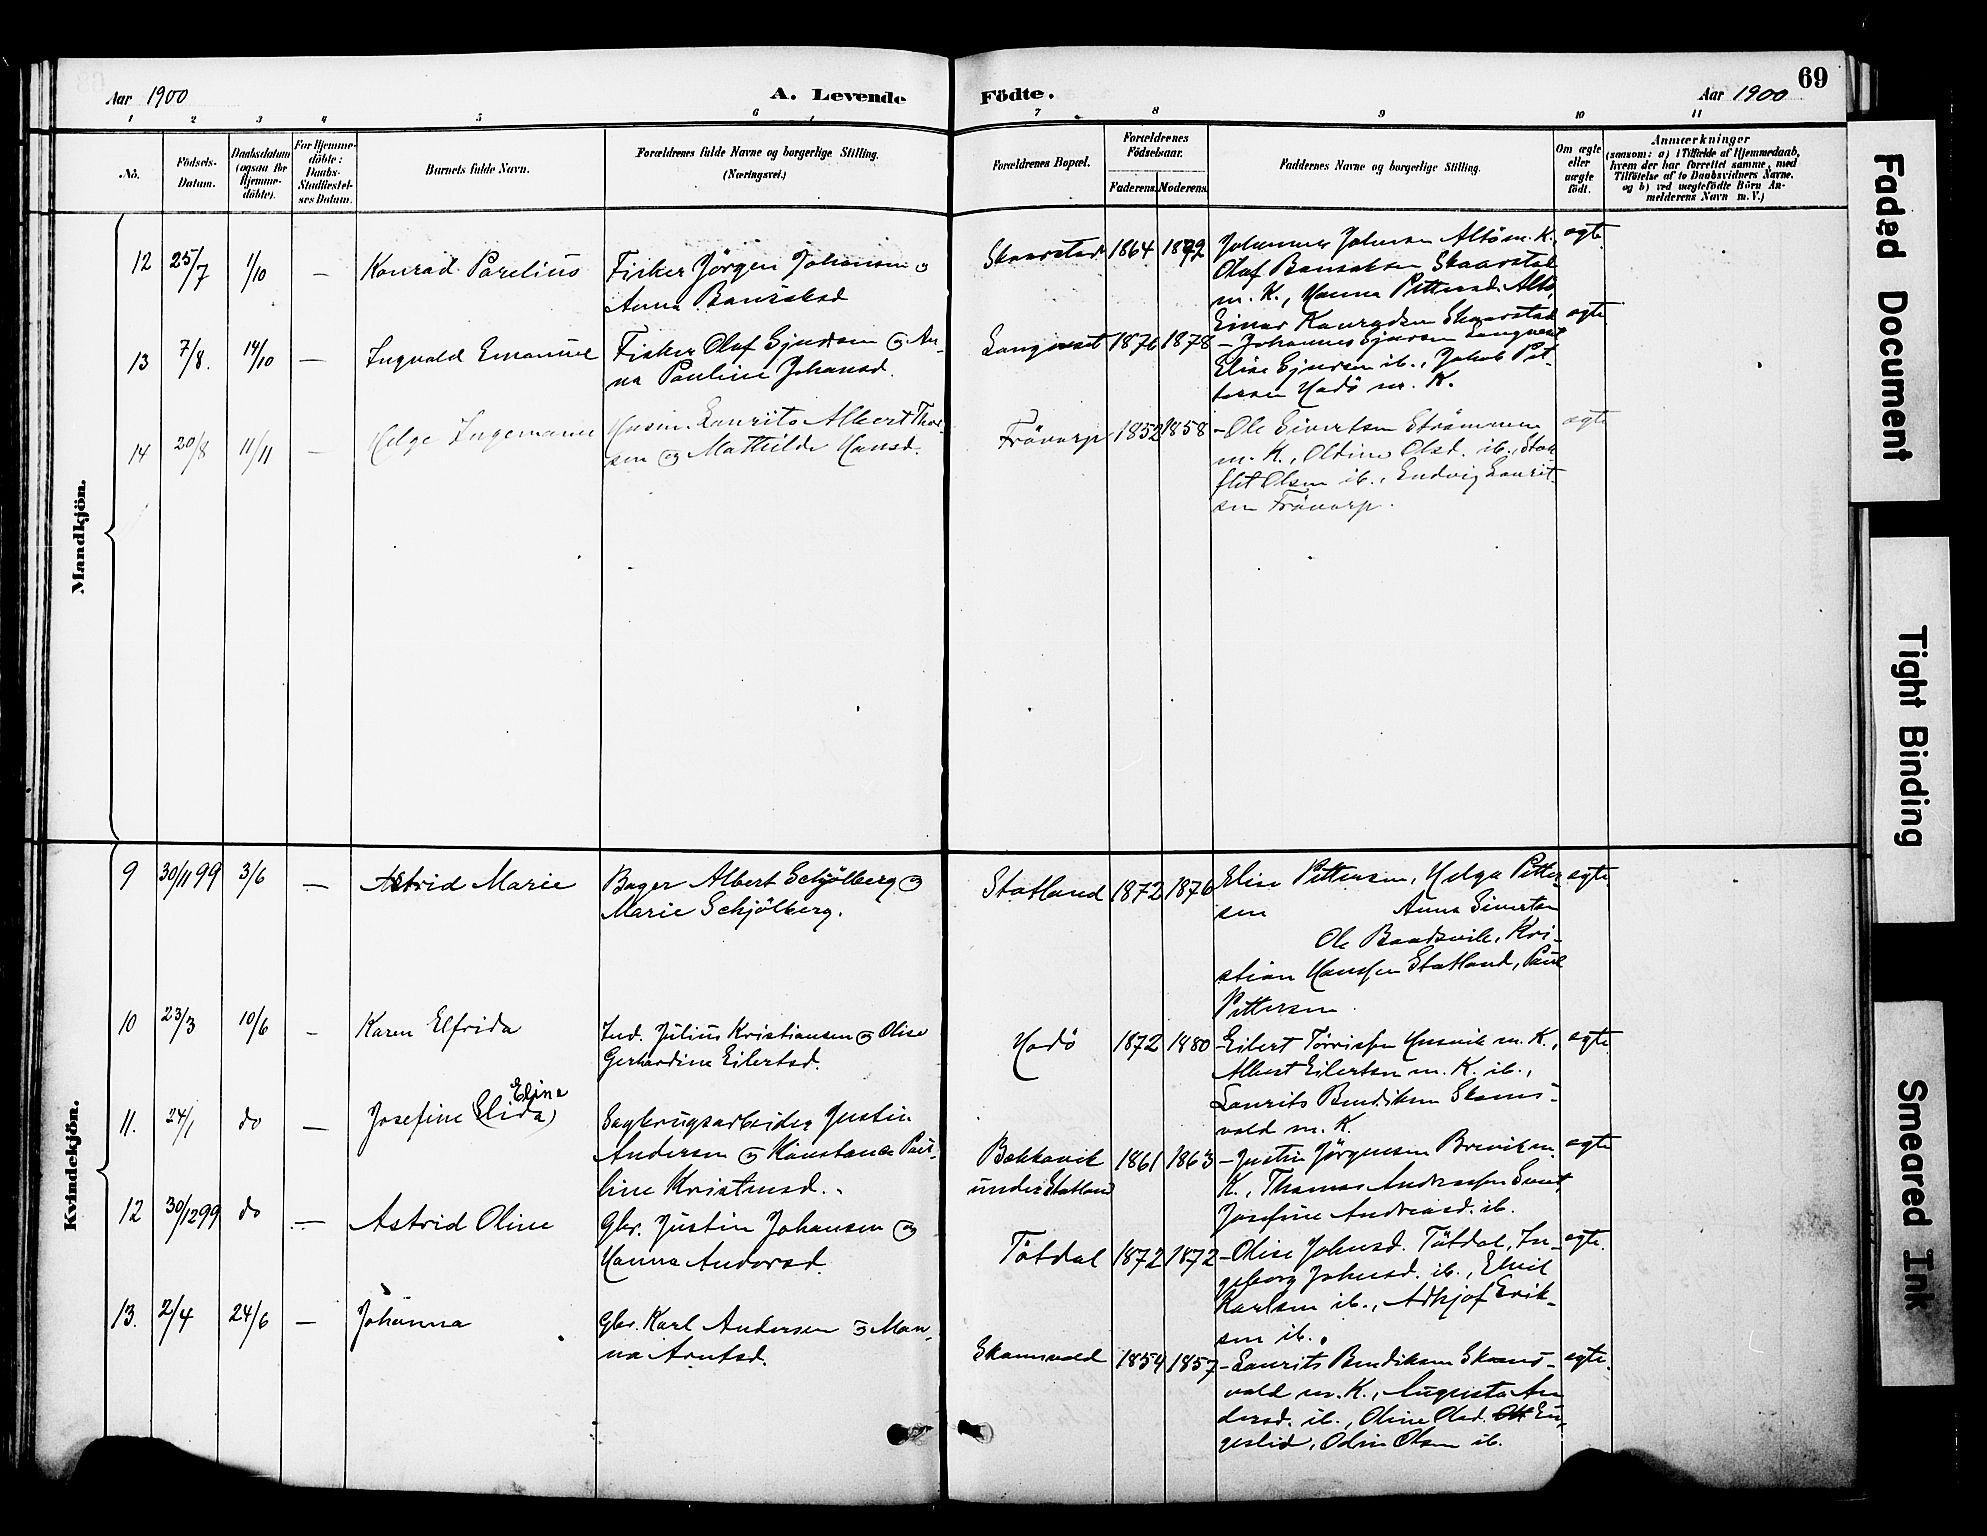 69
Aar 1900
A. Levende
Födte.
Aar 1900
1 2 3 4 5 6 7 8 9 10 11
No.
Födsels-
Datum.
Daabsdatum
(ogsaa for
Hjemme-
döbte).
For Hjemme-
döbte:
Daabs-
Stadfæstel-
ses Datum.
Barnets fulde Navn.
Forældrenes fulde Navne og borgerlige Stilling.
(Næringsvei.)
Forældrenes Bopæl.
Forældrenes
Födselsaar.
Faderens. Moderens.
Faddernes Navne og borgerlige Stilling.
Om ægte
eller
uægte
födt.
Anmærkninger
(saasom: a) i Tilfælde af Hjemmedaab,
hvem der har forrettet samme, med
Tilföielse af to Daabsvidners Navne.
og b) ved uægtefödte Börn An-
melderens Navn m. V.)
Mandkjön.
12 25/7 1/10 — Konrad Parelius
Fisker Jörgen Johansen og
Anna
Skaarstad 1864 1872
Johannes Johnsen Altö m. K.,
Olaf Skaarstad
m. K., Hanna Pettersd. Altö,
Einar Konradsen Skaarstad
ægte
13 7/8. 14/10 — Ingvald Emanuel
Fisker Olaf Gjertsen og An-
na Pauline Johansd.
Langnæset 1876 1878
— Johannes
Elise ib., Jakob Pet-
tersen Hadö m. K.
ægte
14 20/8 11/11 — Helge Ingemann
Husm. Laurits Albert Thor-
sen og Mathilde Hansd.
Frövarp 1852 1858
— Ole Sivertsen Strömmen
m. K., Oldine Olsd. ib.,
Olsen ib., Ludvig Laurit-
sen Frövarp.
ægte
Kvindekjön.
9 30/11 99 3/6 — Astrid Marie
Bager Albert Schjölberg og
Marie Schjölberg.
Statland 1872 1876
Elise Pettersen, Helga Petter-
sen Anna Sivertsen
Ole Kri-
stian Hanssen Statland, Paul
Pettersen.
ægte
10 23/3 10/6 — Karen Elfrida
Ind. Julius Kristiansen og Olise
Gerhardine Eilertsd.
Hadö 1872 1880
— Eilert Törrissen Husvik m. K.,
Albert Eilertsen m. K. ib.,
Laurits Bendiksen Skams-
vold m. K.
ægte
11. 24/1 do — Josefine (Elida) Eline
Sagbrugsarbeider Justin
Andersen og Konstance Pau-
line Kristensd.
Bekkavik
under Statland
1861 1863
— Justin Jörgensen Brevik m.
K., Thomas Andreassen
Josefine Andreasd. ib.
ægte
12 30/12 99 do — Astrid Oline
Gbr. Justin Johansen og
Hanna Andorsd.
Tötdal 1872 1872
— Olise Johnsd. Tötdal, In-
geborg Johnsd. ib.,
Karlsen ib., Erik-
sen ib.
ægte.
13. 2/4 24/6 — Johanna
Gbr. Karl Andersen og Han-
na Arntsd.
Skamsvold 1854 1857
— Laurits Bendiksen Skams-
vold m. K., Augusta An-
dersd. ib., Oline Olsd. En-
geslid, Odin Olsen ib.
ægte.
Faded Document
Tight Binding
Smeared Ink